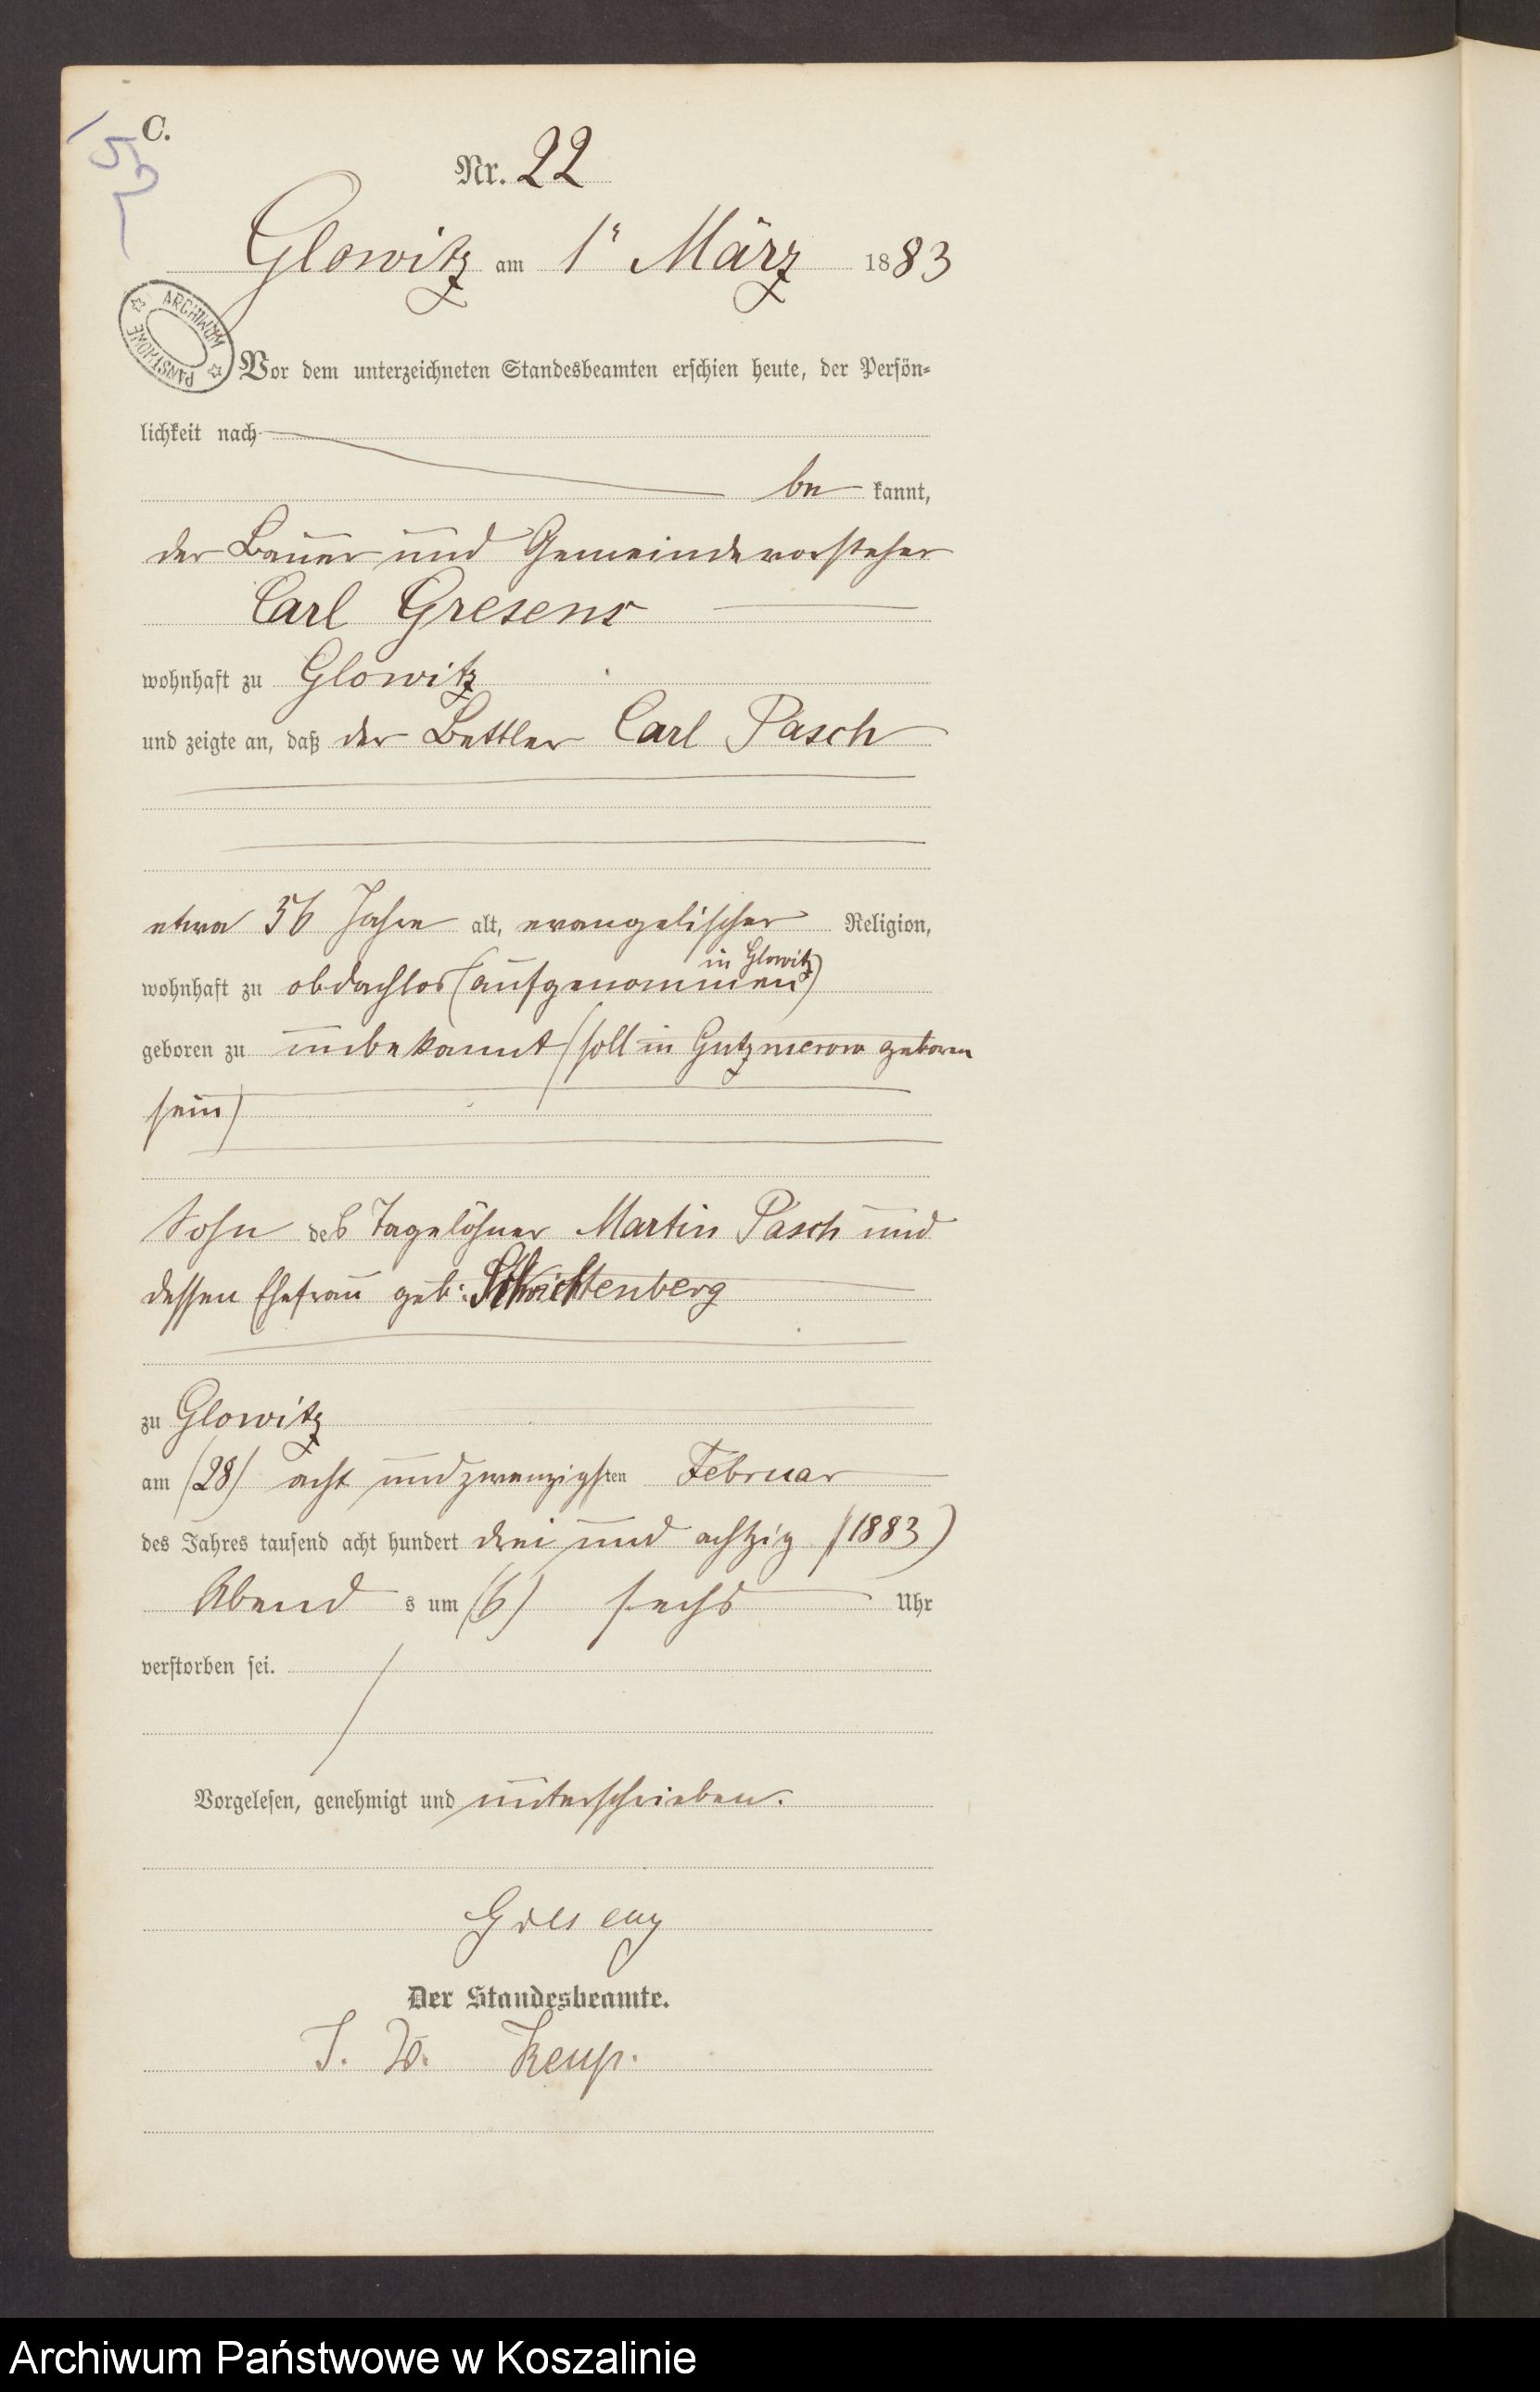 C.
152
Nr. 22
Glowitz am 1" März 1883
ARCHIWUM PAŃSTWOWE
Vor dem unterzeichneten Standesbeamten erschien heute, der Persön-
lichkeit nach
be kannt,
der Bauer und Gemeindevorsteher
Carl Gresens
wohnhaft zu Glowitz
und zeigte an, daß der Bettler Carl Pasch
etwa 56 Jahre alt, evangelischer Religion,
in Glowitz)
wohnhaft zu obdachlos (aufgenommen)
geboren zu unbekannt (soll in Gutzmerow geboren
sein)
Sohn des Tagelöhner Martin Pasch und
dessen Ehefrau geb:
zu Glowitz
am (28) acht und zwanzigsten Februar
des Jahres tausend acht hundert drei und achtzig (1883)
Abend s um (6) sechs Uhr
verstorben sei.
Vorgelesen, genehmigt und unterschrieben.
Der Standesbeamte.
Archiwum Państwowe w Koszalinie